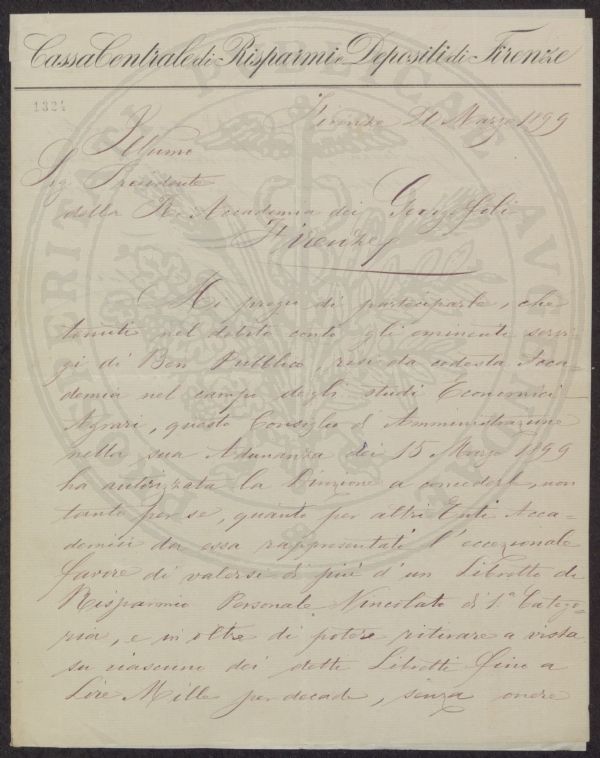 Cassa Centrale di Risparmi e Depositi di Firenze
1324
Firenze 21 Marzo 1899
Illumo
Sig. Presidente
della R. Accademia dei Georgofili
Firenze
Mi pregio di parteciparle, che
tenuti nel debito conto gli eminenti servi-
gi di Ben Pubblico, resi da codesta Acca-
demia nel campo degli studi Economici
Agrari, questo Consiglio d'Amministrazione
nella sua Adunanza dei 15 Marzo 1899
ha autorizzata la Direzione a concederle, non
tanto per se, quanto per altri Enti Acca-
demici da essa rappresentati l'eccezionale
favore di valersi di più d'un Libretto di
Risparmio Personale Vincolato di 1.ª Catego-
ria, e in oltre di potere ritirare a vista
su ciascuno dei detti Libretti fino a
Lire Mille per decade, senza onere